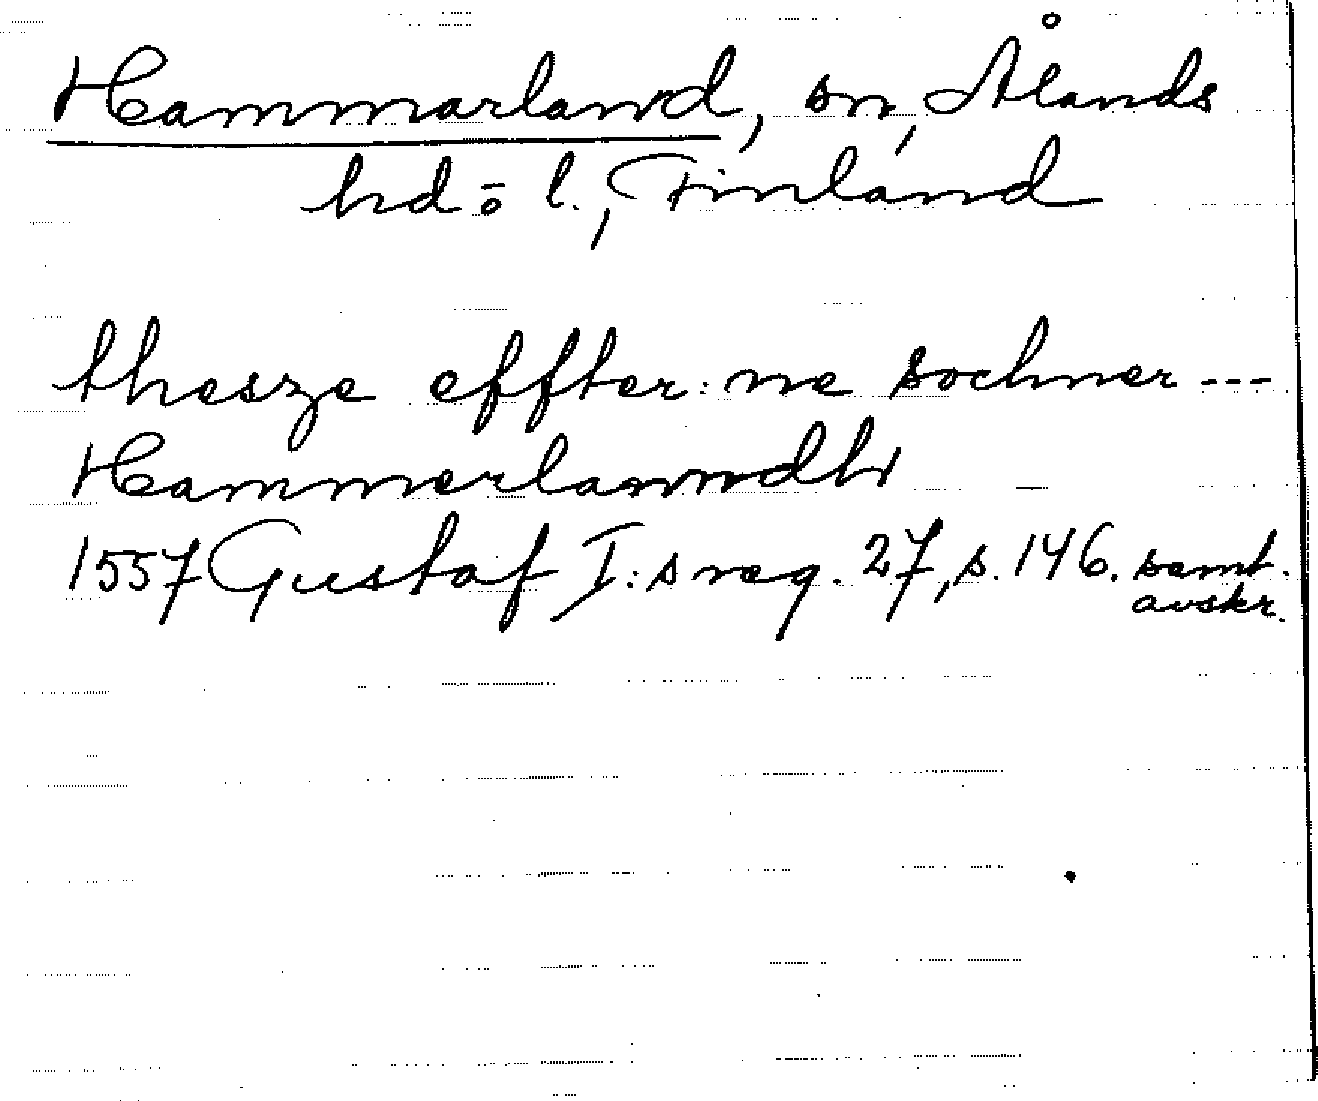 Hammarland, sn, Ålands
hd o l., Finland
thesze effter:ne sochner ---
Hammerlanndh
1557 Gustaf I:s reg. 27, s. 146. samt.
avskr.